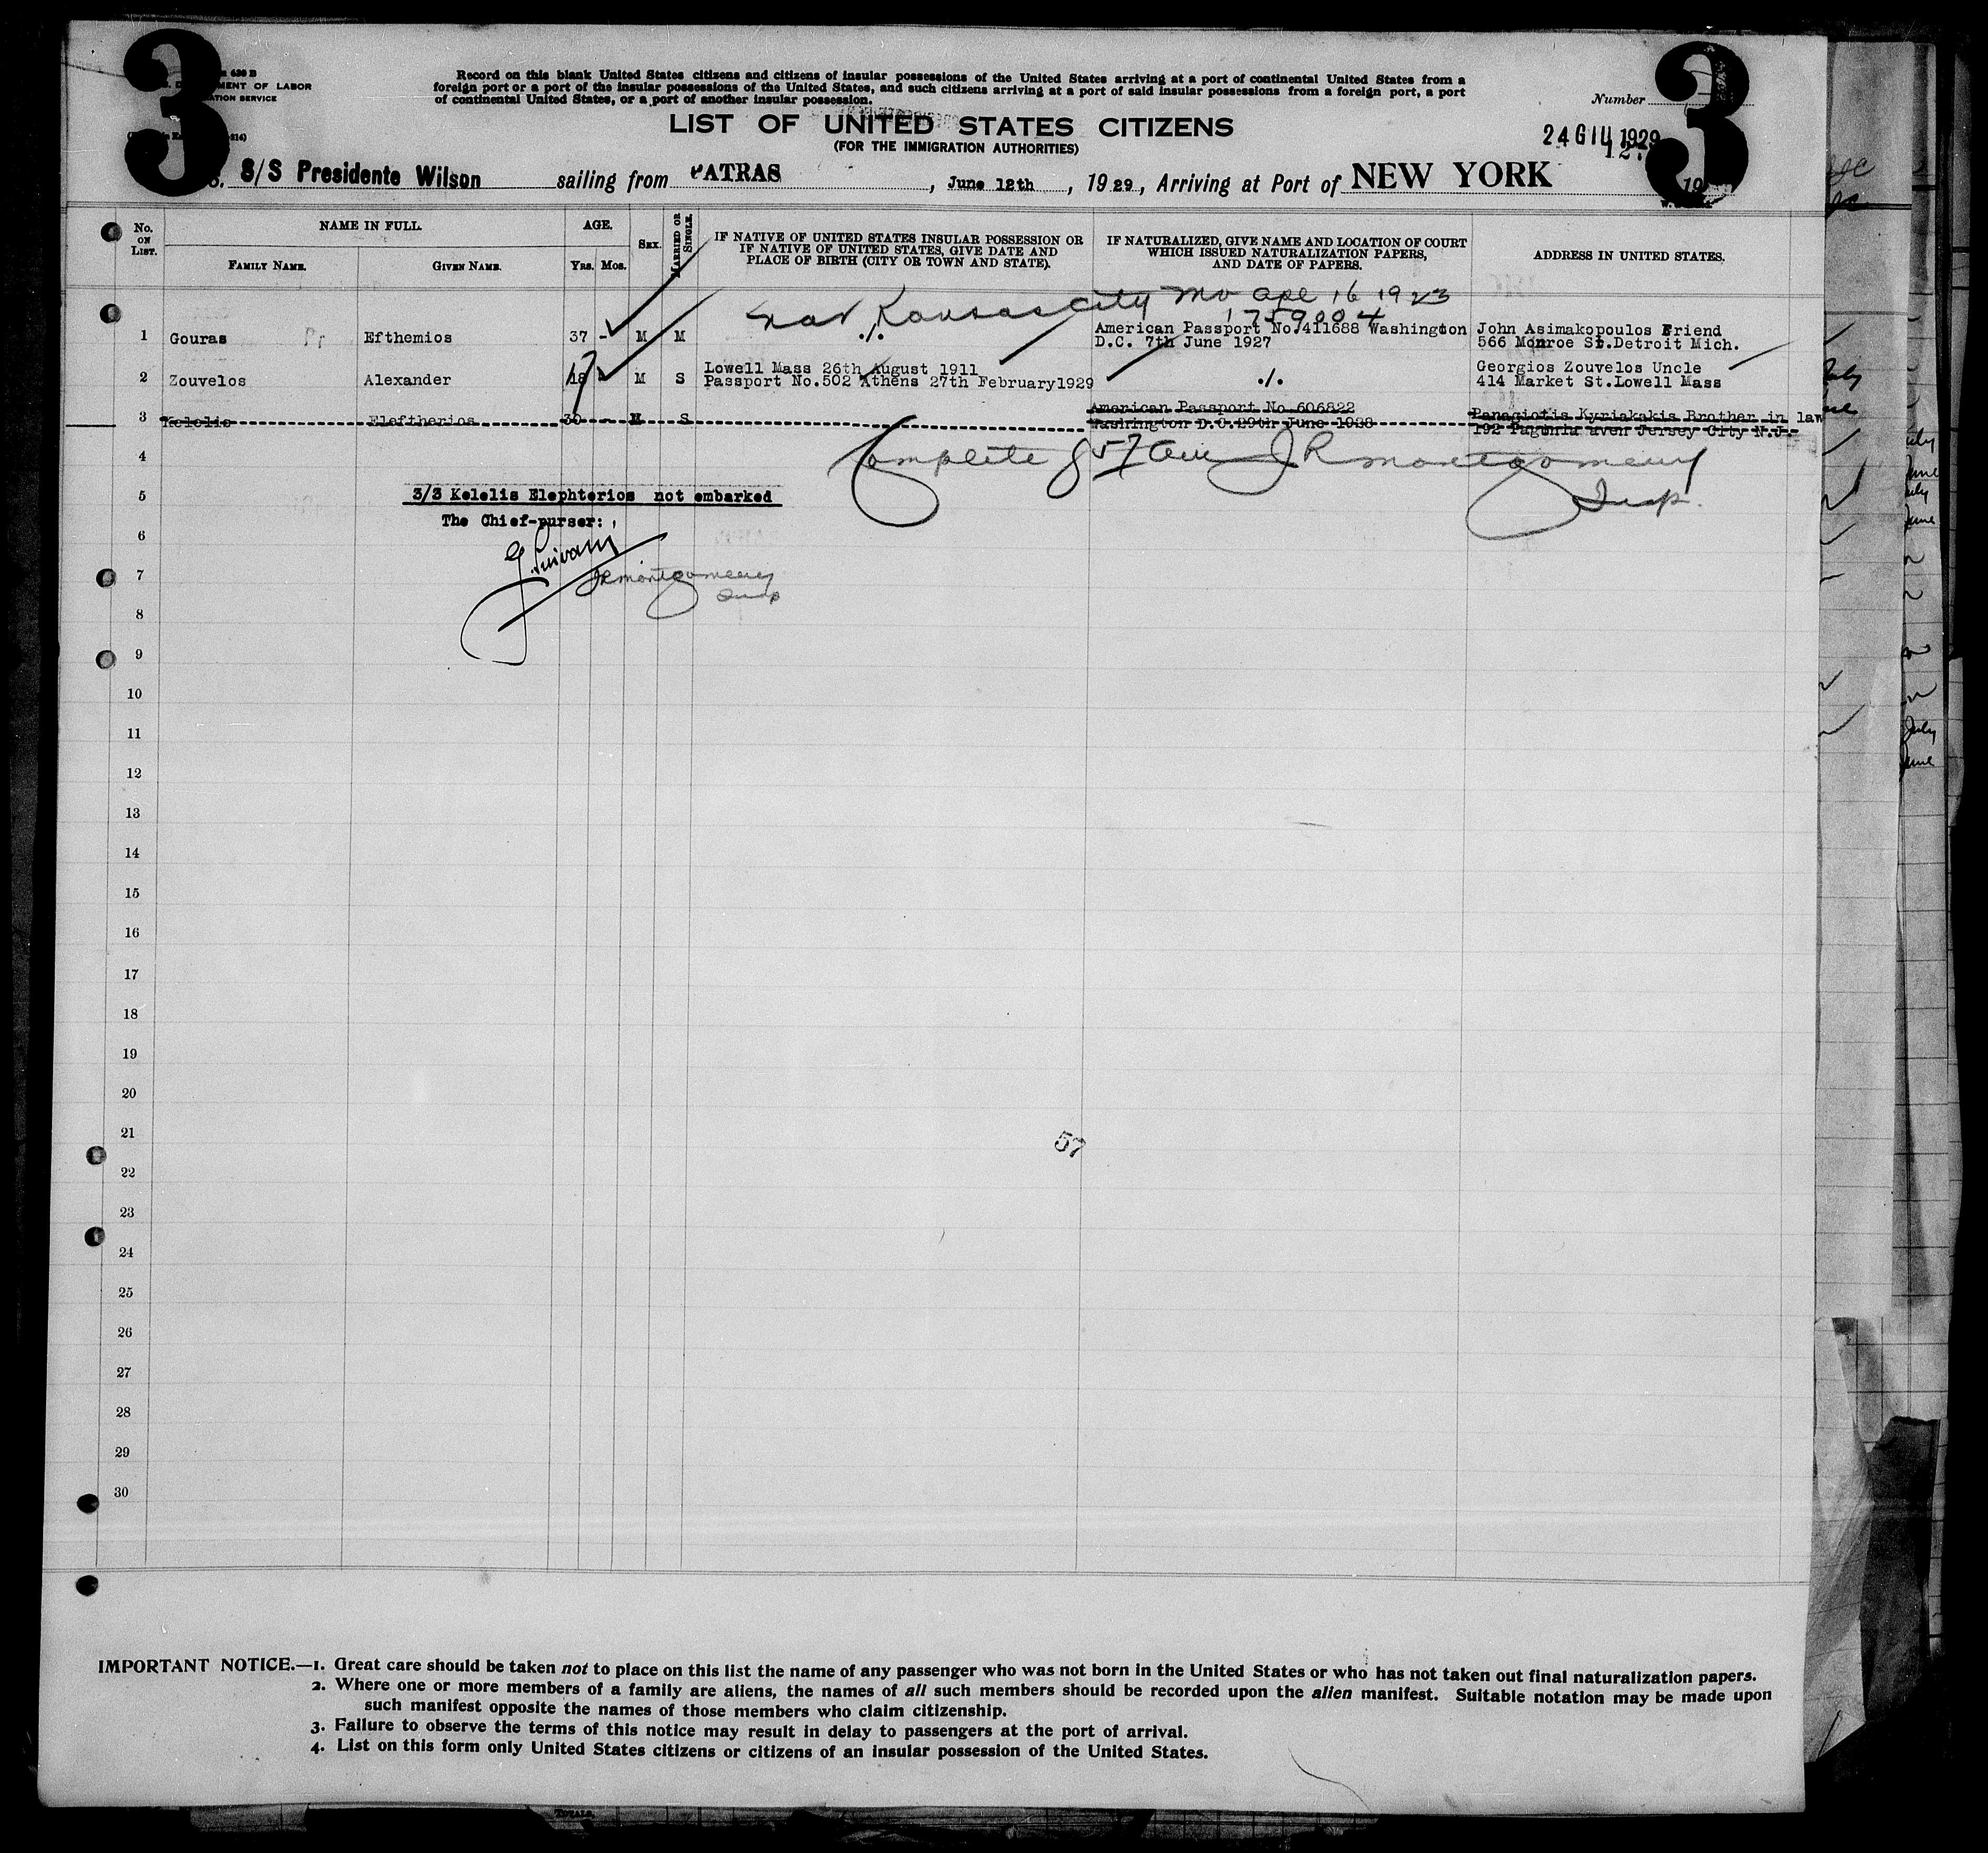 3
3
630 B
MENT OF LABOR
ATION SERVICE
Record on this blank United States citizens and citizens of insular possessions of the United States arriving at a port of continental United States from a
foreign port or a port of the insular possessions of the United States, and such citizens arriving at a port of said insular possessions from a foreign port, a port
of continental United States, or a port of another insular possession.
Number
LIST OF UNITED STATES CITIZENS
(FOR THE IMMIGRATION AUTHORITIES)
24 GIU 1929
S. S/S Presidente Wilson sailing from PATRAS, June 12th, 1929, Arriving at Port of NEW YORK 19
No. ON LIST.
NAME IN FULL.
FAMILY NAME.
GIVEN NAME.
AGE.
YRS. MOS.
SEX.
MARRIED OR SINGLE.
IF NATIVE OF UNITED STATES INSULAR POSSESSION OR
IF NATIVE OF UNITED STATES, GIVE DATE AND
PLACE OF BIRTH (CITY OR TOWN AND STATE).
IF NATURALIZED, GIVE NAME AND LOCATION OF COURT
WHICH ISSUED NATURALIZATION PAPERS,
AND DATE OF PAPERS.
ADDRESS IN UNITED STATES.
nat Kansas City Mo Apl 16 1923
1759004
1 Gouras Efthemios 37 - M M ./. American Passport No.411688 Washington John Asimakopoulos Friend
D.C. 7th June 1927 566 Monroe St.Detroit Mich.
2 Zouvelos Alexander 18 17 - M S Lowell Mass 26th August 1911 ./. Georgios Zouvelos Uncle
Passport No.502 Athens 27th February1929 414 Market St.Lowell Mass
3 Kelelis Eleftherios 30 - M S American Passport No 606822 Panagiotis Kyriakakis Brother in law
Washington D.C.29th June 1928 192 Pagonia aven Jersey City N.J.
4 Complete 857 am J R Montgomery
Insp.
5 3/3 Kelelis Elephterios not embarked
The Chief-purser:
6
7 JR Montgomery
Insp
8
9
10
11
12
13
14
15
16
17
18
19
20
21
57
22
23
24
25
26
27
28
29
30
IMPORTANT NOTICE.—1. Great care should be taken not to place on this list the name of any passenger who was not born in the United States or who has not taken out final naturalization papers.
2. Where one or more members of a family are aliens, the names of all such members should be recorded upon the alien manifest. Suitable notation may be made upon
such manifest opposite the names of those members who claim citizenship.
3. Failure to observe the terms of this notice may result in delay to passengers at the port of arrival.
4. List on this form only United States citizens or citizens of an insular possession of the United States.
TOTALS.
July
June
July
June
July
June
July
June